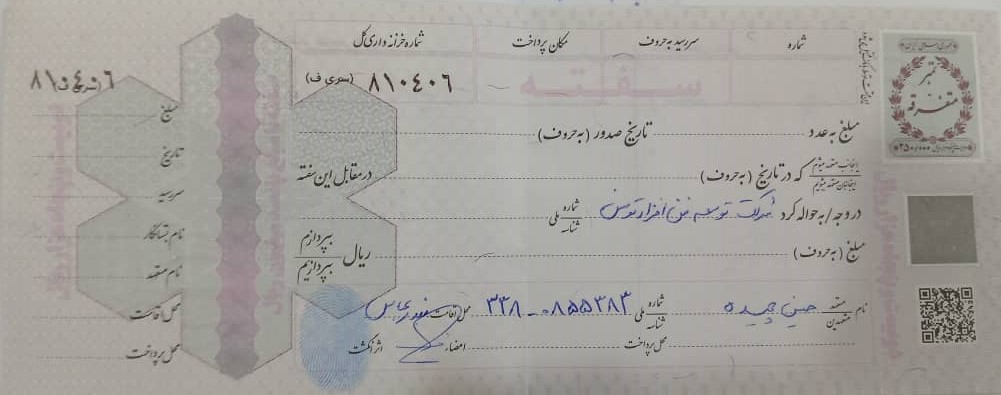 شماره سررسید به حروف مکان پرداخت شماره خزانه داری کل
سفته
۸۱۰۴۰۶ (سری ف)
۸۱۰۴۰۶ (سری ف)
جمهوری اسلامی ایران
تمبر
متفرقه
مبلغ به عدد تاریخ صدور (به حروف)
اینجانب متعهد میشوم
اینجانبان متعهد میشویم
که در تاریخ (به حروف) در مقابل این سفته
در وجه / به حواله کرد شرکت توسعه فن افزار توسن شماره شناسه ملی
مبلغ (به حروف) ریال بپردازم
بپردازیم
نام متعهد
متعهدین حسین حمیده شماره شناسه ملی ۳۳۸-۰۸۵۵۳۸۳ محل اقامت بندرعباس
محل پرداخت امضاء اثر انگشت
مبلغ
تاریخ
سررسید
نام بستانکار
نام متعهد
محل اقامت
محل پرداخت